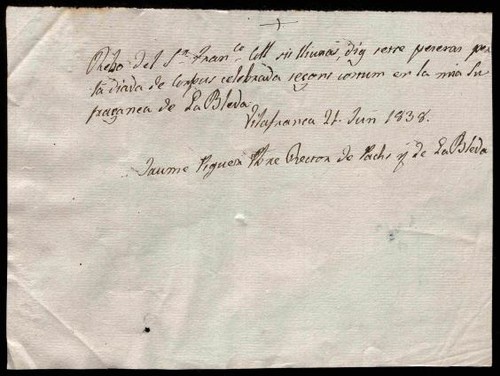 +
Rebo del Sr. Franco. Coll sis lliuras, dig
la diada de Corpus celebrada segons comum en la mia Su
fraganea de La Bleda
Vilafranca 21 Juñ 1838.
Jaume Piguera Pbre Rector de Pachs y de La Bleda